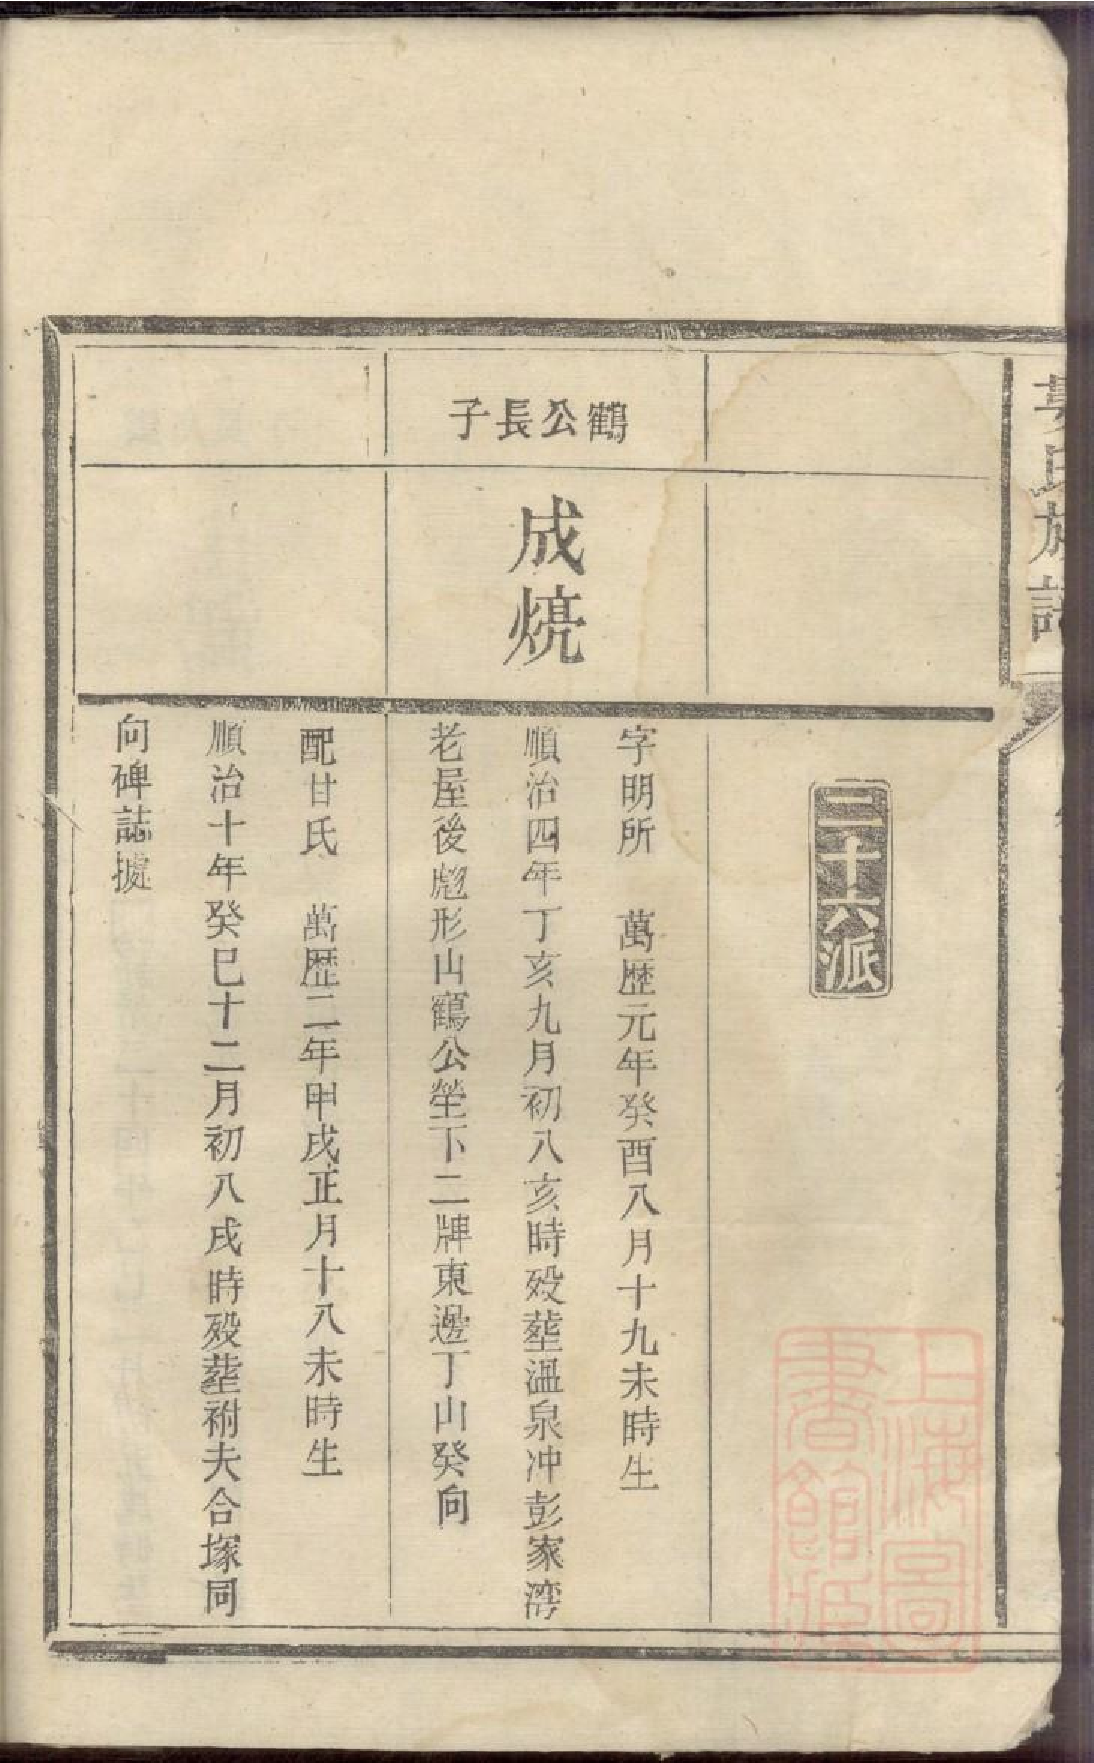 氏族譜
二十六派
鶴公長子
成燒
字明所　萬歷元年癸酉八月十九未時生
順治四年丁亥九月初八亥時歿塟溫泉冲彭家湾
老屋後彪形山鶴公塋下二牌東邊丁山癸向
配甘氏　萬歷二年甲戌正月十八未時生
順治十年癸巳十二月初八戌時歿塟祔夫合塚同
向碑誌據
上海圖書館藏